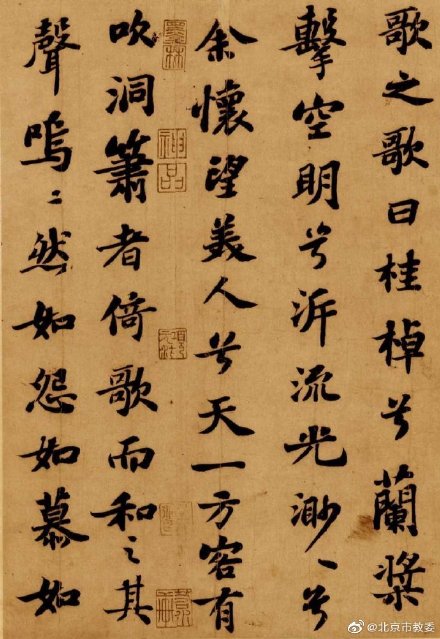 歌之歌曰桂棹兮蘭槳
擊空明兮泝流光渺〻兮
余懷望美人兮天一方客有
吹洞簫者倚歌而和之其
聲嗚〻然如怨如慕如
神品
@北京市教委